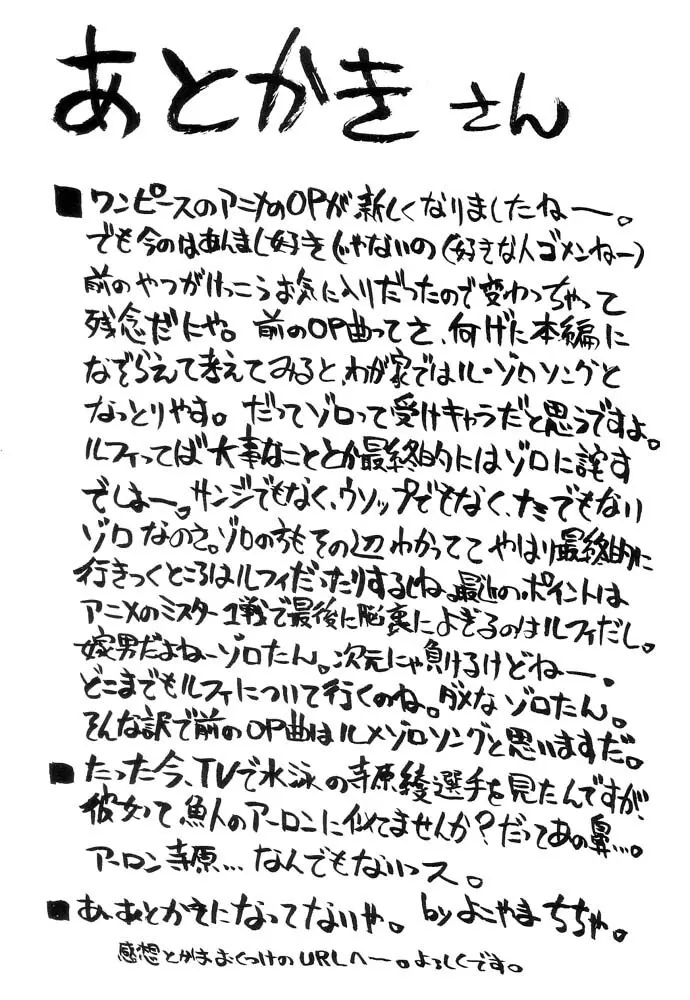 あとがき さん
■ワンピースのアニメのOPが新しくなりましたねー。
でも今のはあんまし好きじゃないの(好きな人ゴメンねー)
前のやつがけっこうお気に入りだったので変わっちゃって
残念だにゃ。前のOP曲ってさ、何げに本編に
なぞらえて考えてみると、わが家ではル・ゾロソングと
なっとりやす。だってゾロって受けキャラだと思うですよ。
ルフィってば大事なこととか最終的にはゾロに託す
でしょー。サンジでもなく、ウソップでもなく、ナミでもない
ゾロなのさ。ゾロの方もその辺わかっててやはり最終的に
行きつくところはルフィだったりするしね。最近のポイントは
アニメのミスター1戦で最後に脳裏によぎるのはルフィだし。
嫁男だよねーゾロたん。次元にゃ負けるけどねー。
どこまでもルフィについて行くのね。ダメなゾロたん。
そんな訳で前のOP曲はル×ゾロソングと思いますだ。
■たった今、TVで水泳の寺原綾選手を見たんですが、
彼女って魚人のアーロンに似てませんか?だってあの鼻…。
アーロン寺原…なんでもないっス。
■あ、あとがきになってないや。 byよこやまちちゃ。
感想とかはおくつけのURLへー。よろしくです。